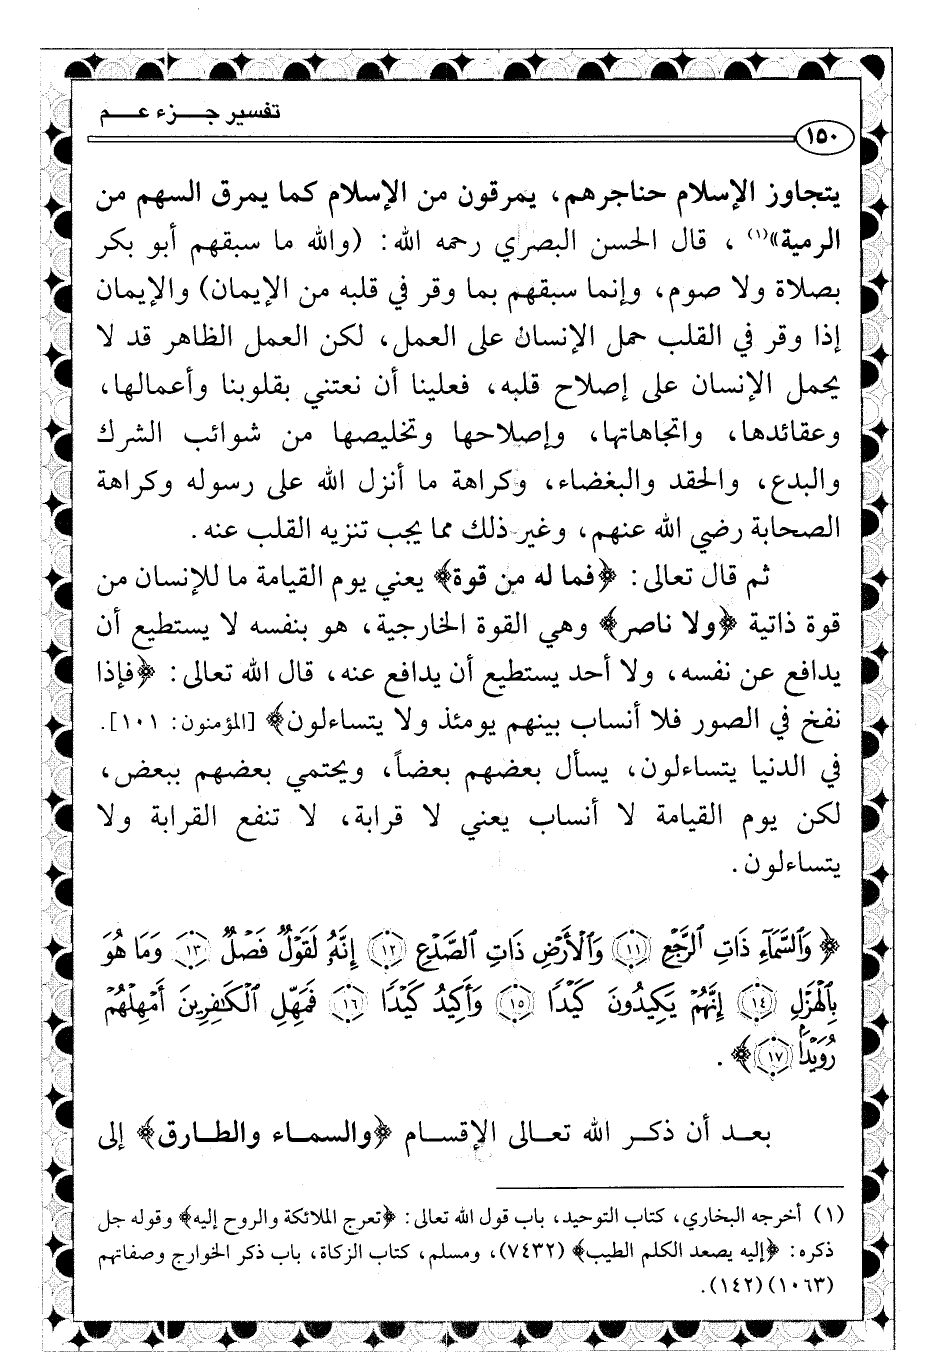 تفسير جزء عم
١٥٠
يتجاوز الإسلام حناجرهم، يمرقون من الإسلام كما يمرق السهم من
الرمية»(١) ، قال الحسن البصري رحمه الله: (والله ما سبقهم أبو بكر
بصلاة ولا صوم، وإنما سبقهم بما وقر في قلبه من الإيمان) والإيمان
إذا وقر في القلب حمل الإنسان على العمل، لكن العمل الظاهر قد لا
يحمل الإنسان على إصلاح قلبه، فعلينا أن نعتني بقلوبنا وأعمالها،
وعقائدها، واتجاهاتها، وإصلاحها وتخليصها من شوائب الشرك
والبدع، والحقد والبغضاء، وكراهة ما أنزل الله على رسوله وكراهة
الصحابة رضي الله عنهم، وغير ذلك مما يجب تنزيه القلب عنه.
ثم قال تعالى: ﴿فما له من قوة﴾ يعني يوم القيامة ما للإنسان من
قوة ذاتية ﴿ولا ناصر﴾ وهي القوة الخارجية، هو بنفسه لا يستطيع أن
يدافع عن نفسه، ولا أحد يستطيع أن يدافع عنه، قال الله تعالى: ﴿فإذا
نفخ في الصور فلا أنساب بينهم يومئذ ولا يتساءلون﴾ [المؤمنون: ١٠١].
في الدنيا يتساءلون، يسأل بعضهم بعضاً، ويحتمي بعضهم ببعض،
لكن يوم القيامة لا أنساب يعني لا قرابة، لا تنفع القرابة ولا
يتساءلون.
﴿وَٱلسَّمَآءِ ذَاتِ ٱلرَّجْعِ ١١ وَٱلْأَرْضِ ذَاتِ ٱلصَّدْعِ ١٢ إِنَّهُۥ لَقَوْلٌ فَصْلٌ ١٣ وَمَا هُوَ
بِٱلْهَزْلِ ١٤ إِنَّهُمْ يَكِيدُونَ كَيْدًا ١٥ وَأَكِيدُ كَيْدًا ١٦ فَمَهِّلِ ٱلْكَٰفِرِينَ أَمْهِلْهُمْ
رُوَيْدًۢا ١٧﴾.
بعد أن ذكر الله تعالى الإقسام ﴿والسماء والطارق﴾ إلى
(١) أخرجه البخاري، كتاب التوحيد، باب قول الله تعالى: ﴿تعرج الملائكة والروح إليه﴾ وقوله جل
ذكره: ﴿إليه يصعد الكلم الطيب﴾ (٧٤٣٢)، ومسلم، كتاب الزكاة، باب ذكر الخوارج وصفاتهم
(١٠٦٣) (١٤٢).